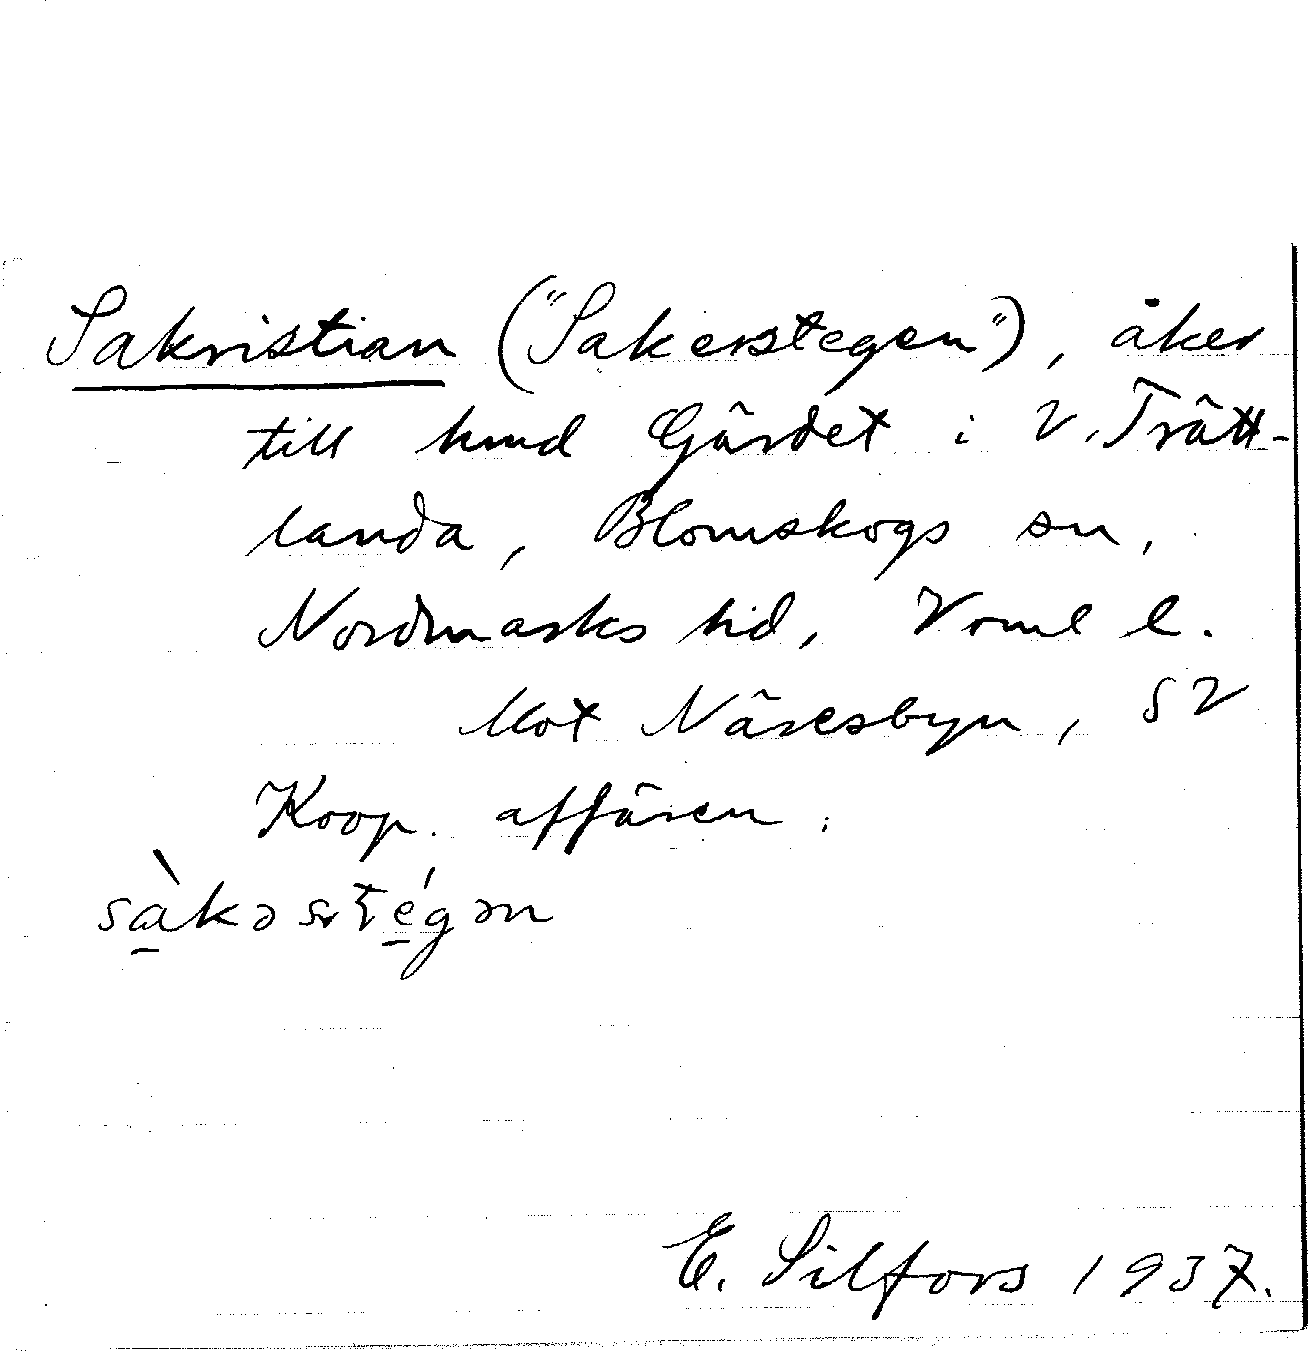 Sakristian ("Sakerstegen"), åker
till hmd Gärdet i V. Trätt-
landa, Blomskogs sn,
Nordmarks hd, Vrml l.
Mot Näresbyn, SV
Koop. affären.
sàkəstégən
E. Silfors 1937.